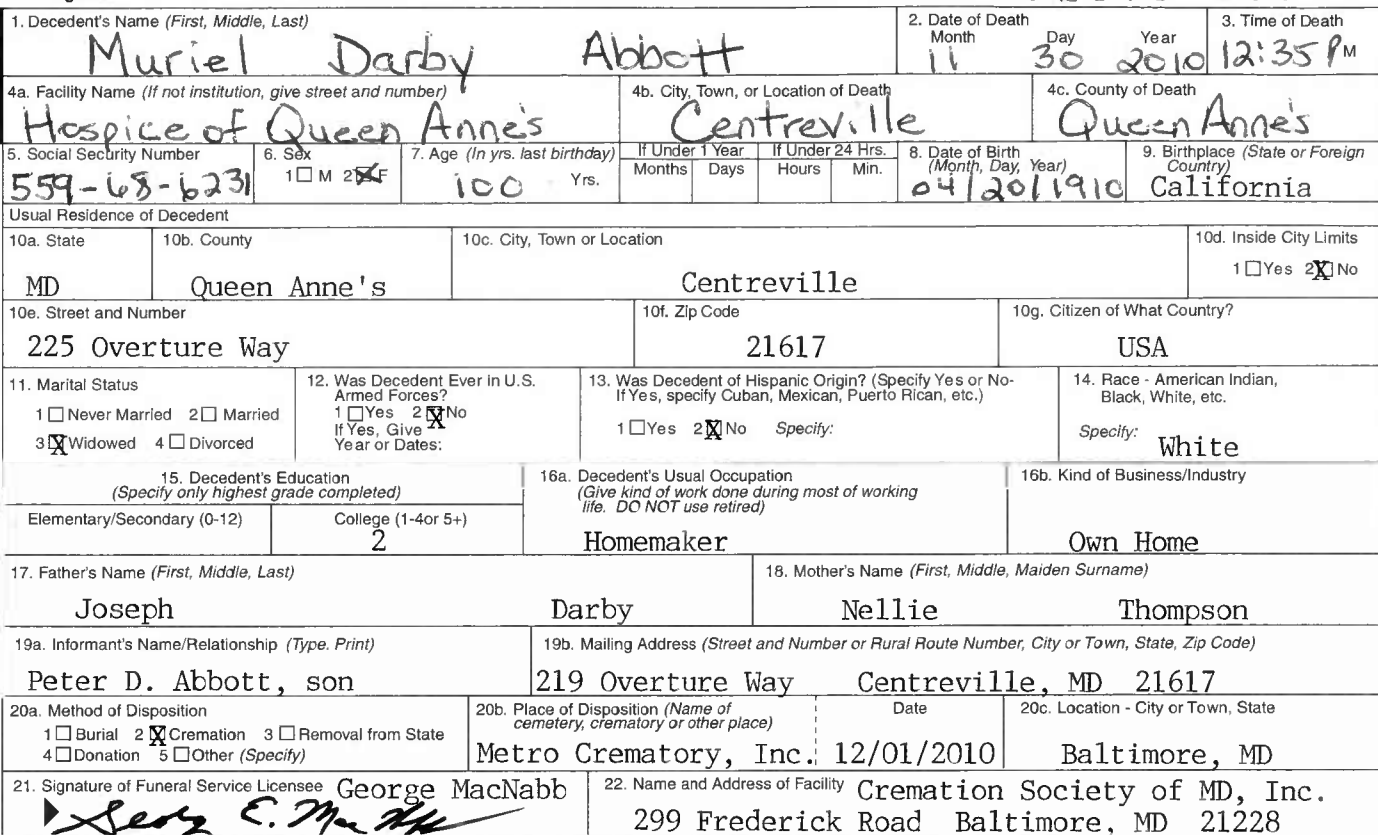 1. Decedent's Name (First, Middle, Last)
Muriel Darby Abbott
2. Date of Death
Month Day Year
11 30 2010
3. Time of Death
12:35 PM
4a. Facility Name (If not institution, give street and number)
Hospice of Queen Anne's
4b. City, Town, or Location of Death
Centreville
4c. County of Death
Queen Anne's
5. Social Security Number
559-68-6231
6. Sex
1 ☐ M 2 ☒ F
7. Age (In yrs. last birthday)
100 Yrs.
If Under 1 Year
Months Days
If Under 24 Hrs.
Hours Min.
8. Date of Birth
(Month, Day, Year)
04/20/1910
9. Birthplace (State or Foreign
Country)
California
Usual Residence of Decedent
10a. State
MD
10b. County
Queen Anne's
10c. City, Town or Location
Centreville
10d. Inside City Limits
1 ☐ Yes 2 ☒ No
10e. Street and Number
225 Overture Way
10f. Zip Code
21617
10g. Citizen of What Country?
USA
11. Marital Status
1 ☐ Never Married 2 ☐ Married
3 ☒ Widowed 4 ☐ Divorced
12. Was Decedent Ever in U.S.
Armed Forces?
1 ☐ Yes 2 ☒ No
If Yes, Give
Year or Dates:
13. Was Decedent of Hispanic Origin? (Specify Yes or No-
If Yes, specify Cuban, Mexican, Puerto Rican, etc.)
1 ☐ Yes 2 ☒ No Specify:
14. Race - American Indian,
Black, White, etc.
Specify: White
15. Decedent's Education
(Specify only highest grade completed)
Elementary/Secondary (0-12)
College (1-4or 5+)
2
16a. Decedent's Usual Occupation
(Give kind of work done during most of working
life. DO NOT use retired)
Homemaker
16b. Kind of Business/Industry
Own Home
17. Father's Name (First, Middle, Last)
Joseph Darby
18. Mother's Name (First, Middle, Maiden Surname)
Nellie Thompson
19a. Informant's Name/Relationship (Type. Print)
Peter D. Abbott, son
19b. Mailing Address (Street and Number or Rural Route Number, City or Town, State, Zip Code)
219 Overture Way Centreville, MD 21617
20a. Method of Disposition
1 ☐ Burial 2 ☒ Cremation 3 ☐ Removal from State
4 ☐ Donation 5 ☐ Other (Specify)
20b. Place of Disposition (Name of
cemetery, crematory or other place)
Metro Crematory, Inc.
Date
12/01/2010
20c. Location - City or Town, State
Baltimore, MD
21. Signature of Funeral Service Licensee George MacNabb
22. Name and Address of Facility Cremation Society of MD, Inc.
299 Frederick Road Baltimore, MD 21228